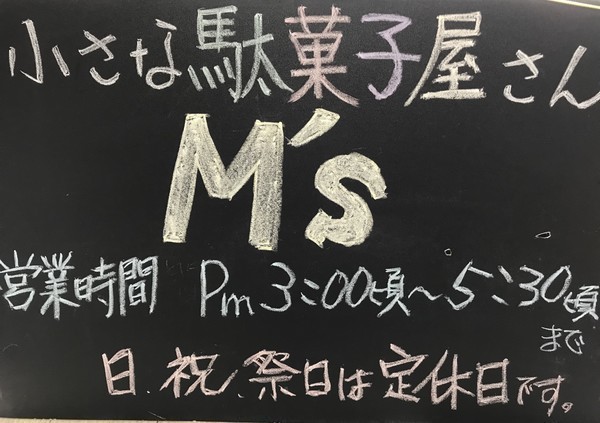 小さな駄菓子屋さん
M's
営業時間 Pm 3:00頃~5:30頃
まで
日、祝、祭日は定休日です。